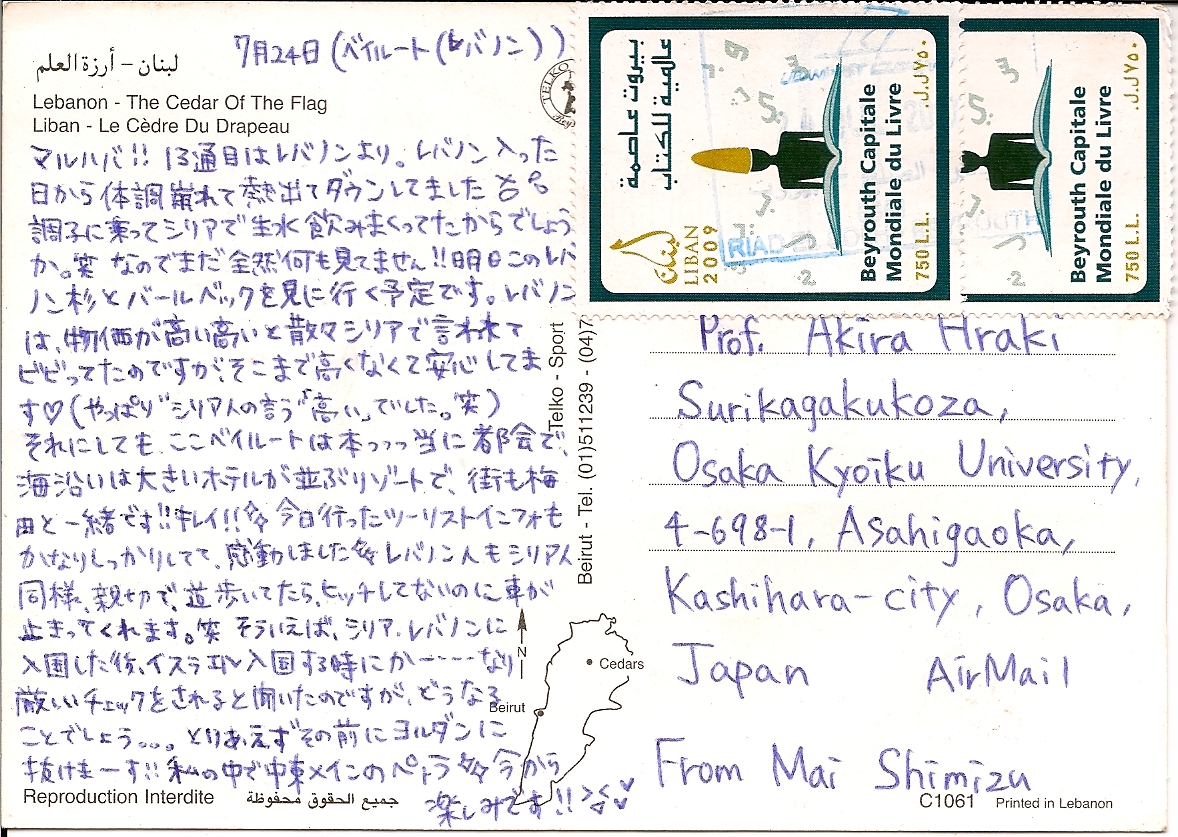 7月24日(ベイルート(レバノン))
لبنان - أرزة العلم
Lebanon - The Cedar Of The Flag
Liban - Le Cèdre Du Drapeau
マルハバ!! 13通目はレバノンより。レバノン入った
日から体調崩れて熱出てダウンしてました
調子に乗ってシリアで生水飲みまくってたからでしょう
か。笑 なのでまだ全然何も見てません!!明日このレバ
ノン杉とバールベックを見に行く予定です。レバノン
は、物価が高い高いと散々シリアで言われて
ビビってたのですが、そこまで高くなくて安心してま
す♡(やっぱり"シリア人の言う「高い」でした。笑)
それにしても、ここベイルートは本っっっ当に都会で、
海沿いは大きいホテルが並ぶリゾートで、街も梅
田と一緒です!!キレイ!! 今日行ったツーリストインフォも
かなりしっかりしてて、感動しました レバノン人もシリア人
同様、親切で、道歩いてたら、ヒッチしてないのに車が
止まってくれます。笑 そういえば、シリア、レバノンに
入国した後、イスラエル入国する時にか-----なり
厳しいチェックをされると聞いたのですが、どうなる
ことでしょう...。とりあえずその前にヨルダンに
抜けまーす!! 私の中で中東メインのペトラ 今から
楽しみです!!
Reproduction Interdite
جميع الحقوق محفوظة
N
Cedars
Beirut
TELKO
Telko - Sport
Beirut - Tel. (01)511239 - (04)7
بيروت عاصمة
عالمية للكتاب
لبنان
LIBAN
2009
Beyrouth Capitale
Mondiale du Livre
750 L.L.
٧٥٠ ل.ل.
RIAD
Beyrouth Capitale
Mondiale du Livre
750 L.L.
٧٥٠ ل.ل.
Prof. Akira Hraki
Surikagakukoza,
Osaka Kyoiku University,
4-698-1, Asahigaoka,
Kashihara-city, Osaka,
Japan AirMail
From Mai Shimizu
C1061 Printed in Lebanon